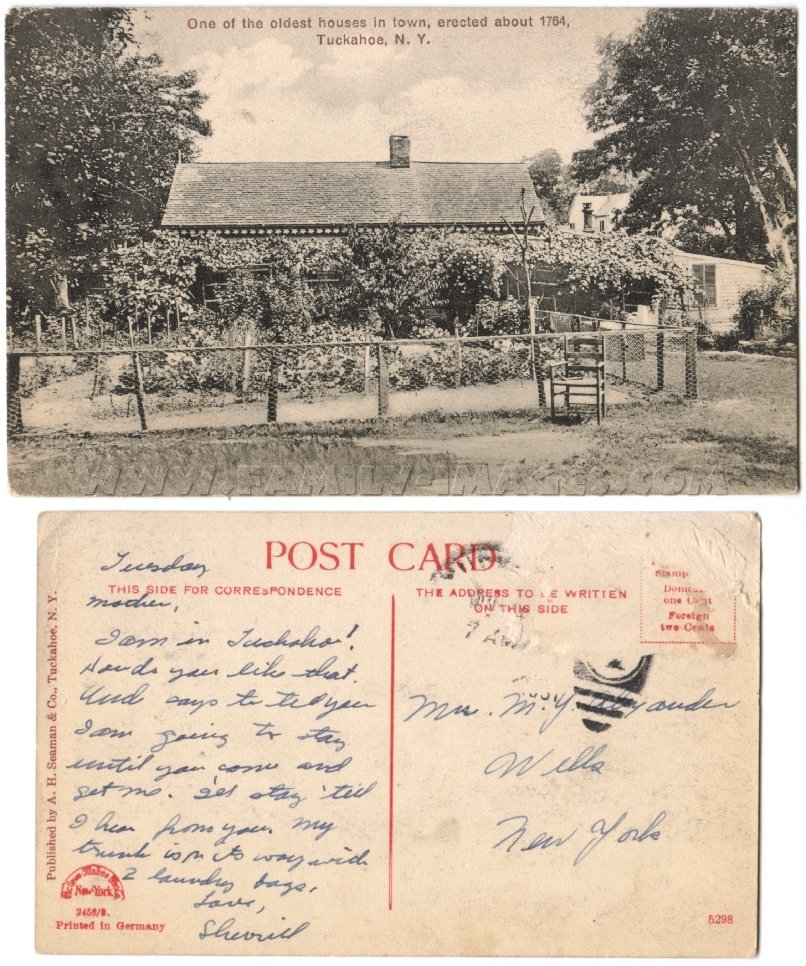 One of the oldest houses in town, erected about 1764,
Tuckahoe, N. Y.
WWW.FAMILY-IMAGES.COM
POST CARD
THIS SIDE FOR CORRESPONDENCE
THE ADDRESS TO BE WRITTEN
ON THIS SIDE
Stamp
Domes
one Cent
Foreign
two Cents
7 AM
Published by A. H. Seaman & Co., Tuckahoe, N. Y.
Tuesday
Mother,
I am in Tuckahoe!
How do you like that.
And says to tell you
I am going to stay
until you come and
get me. I'll stay 'till
I hear from you. My
trunk is on its way with
2 laundry bags.
Love,
Sherrill
Mrs. M. Y. Alexander
Wells
New York
New-York
2456/B.
Printed in Germany
5298